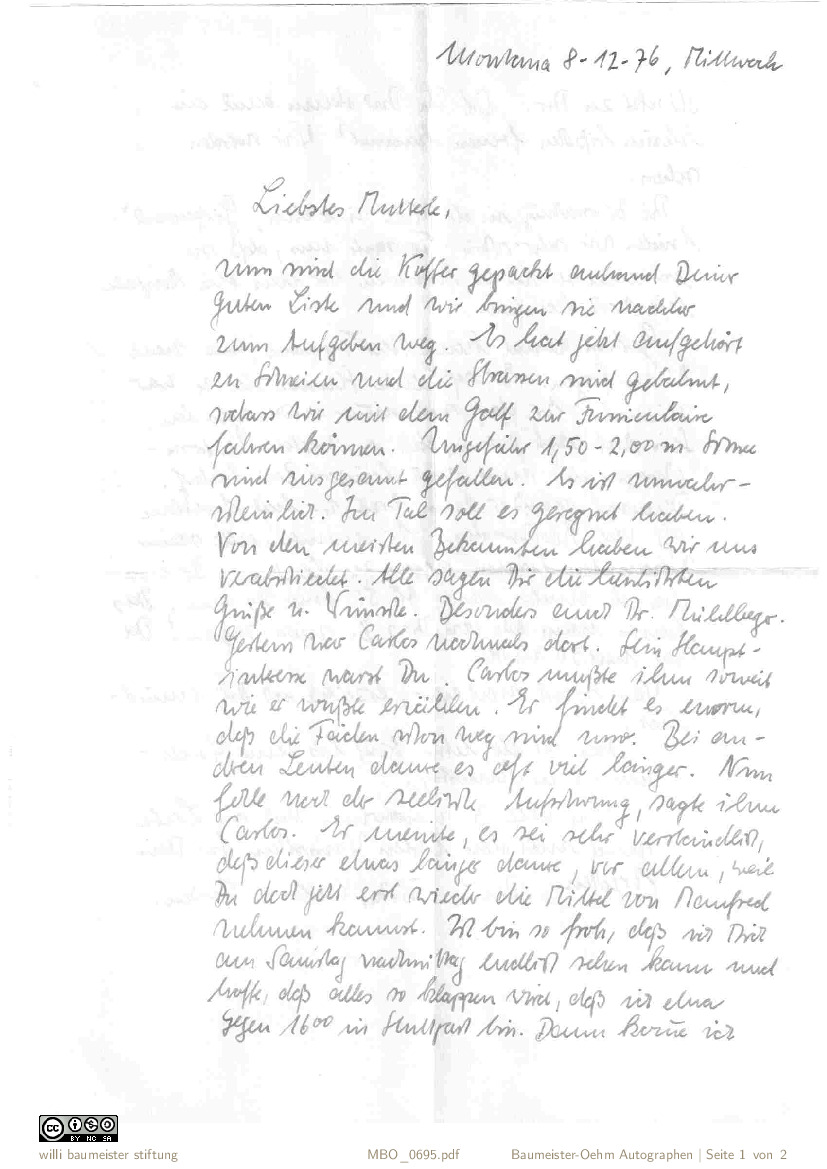 Montana 8-12-76, Mittwoch
Liebstes Mutterle,
nun sind die Koffer gepackt anhand Deiner
guten Liste und wir bringen sie nachher
zum Aufgeben weg. Es hat jetzt aufgehört
zu schneien und die Strassen sind gebahnt,
sodass wir mit dem Golf zur Funiculaire
fahren können. Ungefähr 1,50-2,00 m Schnee
sind insgesamt gefallen. Es ist unwahr-
scheinlich. Im Tal soll es geregnet haben.
Von den meisten Bekannten haben wir uns
verabschiedet. Alle sagen Dir die herzlichsten
Grüße u. Wünsche. Besonders auch Dr. Mühlberger.
Gestern war Carlos nochmals dort. Sein Haupt-
interesse warst Du. Carlos mußte ihm soweit
wie er wußte erzählen. Er findet es enorm,
daß die Fäden schon weg sind usw. Bei an-
dren Leuten daure es oft viel länger. Nun
fehle noch der seelische Aufschwung, sagte ihm
Carlos. Er meinte, es sei sehr verständlich,
daß dieser etwas länger daure, vor allem, weil
Du doch jetzt erst wieder die Mittel von Manfred
nehmen kannst. Ich bin so froh, daß ich Dich
am Samstag nachmittag endlich sehen kann und
hoffe, daß alles so klappen wird, daß ich etwa
gegen 16⁰⁰ in Stuttgart bin. Dann kom̅e ich
cc BY NC SA
willi baumeister stiftung MBO_0695.pdf Baumeister-Oehm Autographen | Seite 1 von 2